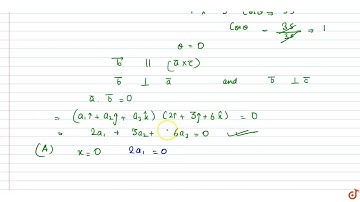 Cosθ = 35/35 = 1
θ = 0
b̅ || (a̅ x c̅)
b̅ ⊥ a̅ and b̅ ⊥ c̅
a̅ . b̅ = 0
= (a₁î + a₂ĵ + a₃k̂) (2î + 3ĵ + 6k̂) = 0
= 2a₁ + 3a₂ + 6a₃ = 0
(A) x = 0 2a₁ = 0